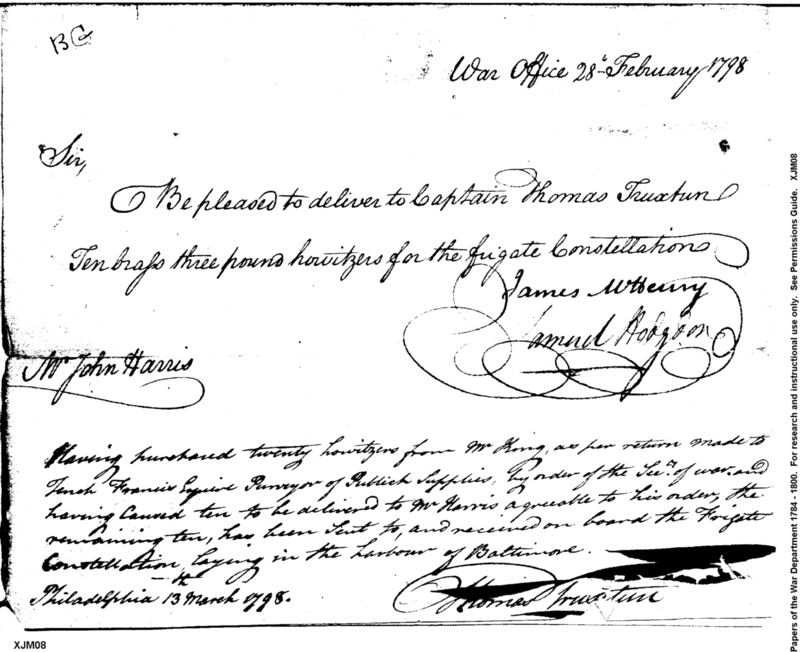 BG
War Office 28th February 1798
Sir,
Be pleased to deliver to Captain Thomas Truxtun
Ten brass three pound howitzers for the frigate Constellation
James McHenry
Samuel Hodgdon
Mr John Harris
Having purchased twenty howitzers from Mr King, as per return made to
Tench Francis Esquire Purveyor of Publick Supplies, by order of the Secy. of war, and
having Caused ten to be delivered to Mr Harris agreeable to his order, the
remaining ten, has been Sent to, and received on board the Frigate
Constellation, laying in the harbour of Baltimore.
Philadelphia 13th March 1798.
Thomas Truxtun
XJM08
Papers of the War Department 1784 - 1800. For research and instructional use only. See Permissions Guide. XJM08